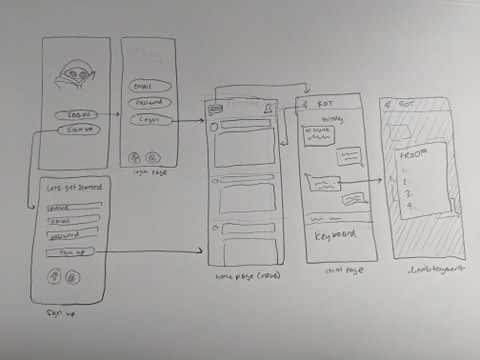 LOGIN
SIGN UP
Email
Password
Login
login page
Lets get started
email
password
Sign up
Sign up
home page (news)
BOT
thinking
Keyboard
chat page
BOT
PROOF
1.
2.
3.
4.